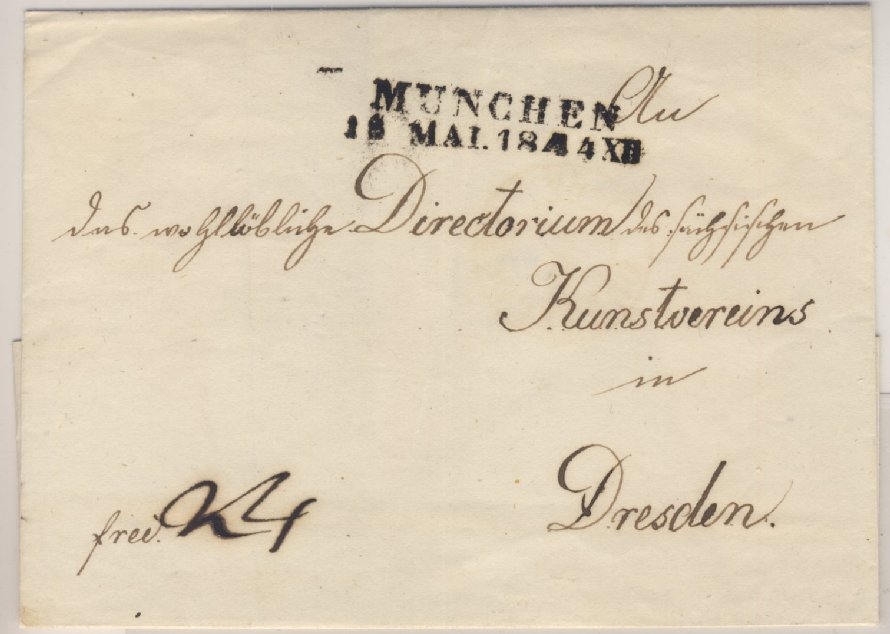 MUNCHEN
18 MAI. 1844 XII
An
das wohllöbliche Directorium des sächsischen
Kunstvereins
in
Dresden.
frei.